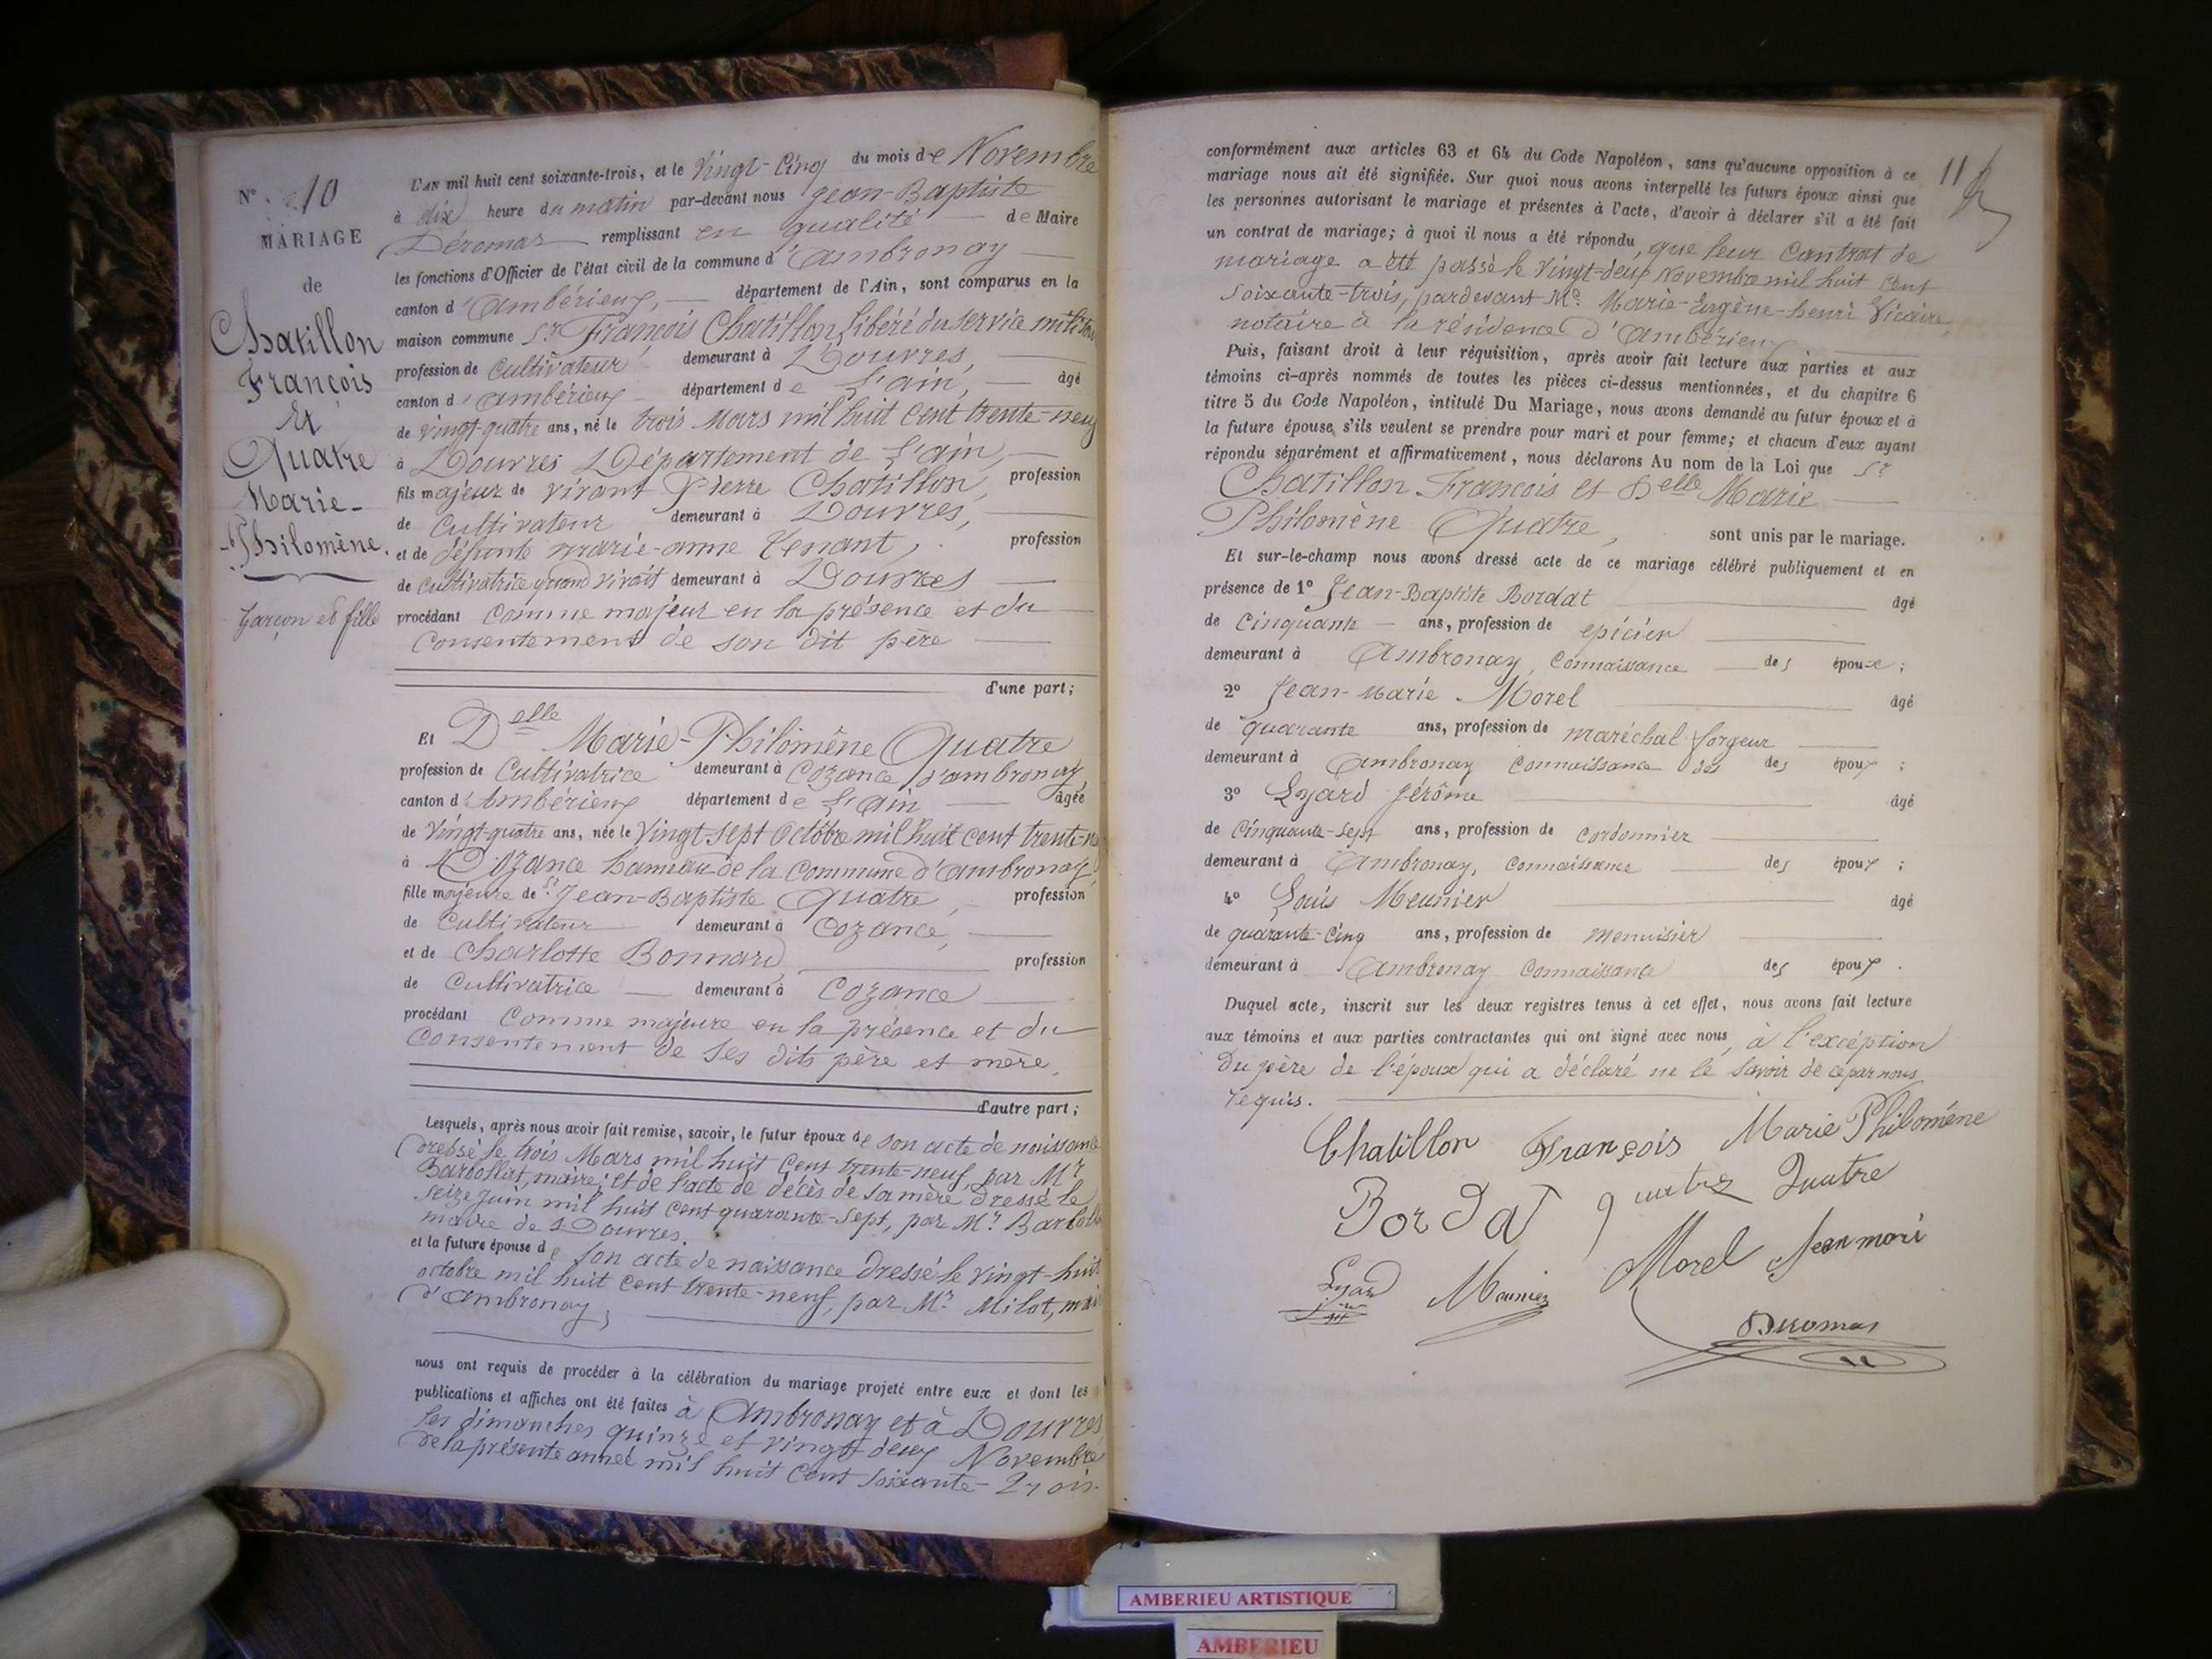 N° 10
MARIAGE
de
Chatillon
François
Et
Quatre
Marie-
Philomène.
garçon et fille
L'AN mil huit cent soixante-trois, et le Vingt-Cinq du mois de Novembre
à dix heure du matin par-devant nous Jean-Baptiste
Déromas remplissant en qualité de Maire
les fonctions d'Officier de l'état civil de la commune d'Ambronay
canton d'Ambérieux, département de l'Ain, sont comparus en la
maison commune Sr. François Chatillon, libéré du service
profession de Cultivateur demeurant à Douvres,
canton d'Ambérieux département de L'ain, âgé
de vingt-quatre ans, né le trois Mars mil huit cent trente-neuf
à Douvres Département de L'ain,
fils majeur de vivant Pierre Chatillon, profession
de Cultivateur demeurant à Douvres,
et de défunte Marie-anne Venant, profession
de cultivatrice quand vivait demeurant à Douvres
procédant comme majeur en la présence et du
Consentement de son dit père
d'une part;
Et Delle Marie-Philomène Quatre
profession de Cultivatrice demeurant à Cozance d'ambronay,
canton d'Ambérieux département de L'Ain âgée
de Vingt-quatre ans, née le Vingt-sept Octobre mil huit cent trente-n
à Cozance hameau de la Commune d'ambronay,
fille majeure de Sr. Jean-Baptiste Quatre, profession
de Cultivateur demeurant à Cozance,
et de Charlotte Bonnard profession
de Cultivatrice demeurant à Cozance
procédant Comme majeure en la présence et du
Consentement de ses dits père et mère,
d'autre part;
Lesquels, après nous avoir fait remise, savoir, le futur époux de son acte de naissance
dressé le trois Mars mil huit Cent trente-neuf, par Mr
maire; et de l'acte de décès de sa mère dressé le
seize Juin mil huit cent quarante-sept, par Mr.
maire de Douvres.
et la future épouse de son acte de naissance dressé le Vingt-huit
octobre mil huit cent trente-neuf, par Mr. Milot, mai
d'Ambronay;
nous ont requis de procéder à la célébration du mariage projeté entre eux et dont les
publications et affiches ont été faites à Ambronay et à Douvres,
les dimanches quinze et vingt-deux Novembre
de la présente année mil huit Cent soixante-Trois.
11
conformément aux articles 63 et 64 du Code Napoléon, sans qu'aucune opposition à ce
mariage nous ait été signifiée. Sur quoi nous avons interpellé les futurs époux ainsi que
les personnes autorisant le mariage et présentes à l'acte, d'avoir à déclarer s'il a été fait
un contrat de mariage; à quoi il nous a été répondu, que leur Contrat de
mariage a été passé le Vingt-deux Novembre mil huit Cent
soixante-trois, pardevant Me. Marie-Eugène-henri Vicaire,
notaire à la résidence d'Ambérieux
Puis, faisant droit à leur réquisition, après avoir fait lecture aux parties et aux
témoins ci-après nommés de toutes les pièces ci-dessus mentionnées, et du chapitre 6
titre 5 du Code Napoléon, intitulé Du Mariage, nous avons demandé au futur époux et à
la future épouse s'ils veulent se prendre pour mari et pour femme; et chacun d'eux ayant
répondu séparément et affirmativement, nous déclarons Au nom de la Loi que Sr
Chatillon François et Delle Marie
Philomène Quatre, sont unis par le mariage.
Et sur-le-champ nous avons dressé acte de ce mariage célébré publiquement et en
présence de 1° Jean-Baptiste Bordat âgé
de Cinquante ans, profession de epicier
demeurant à Ambronay, Connaissance des époux;
2° Jean-Marie Morel âgé
de quarante ans, profession de maréchal-forgeur
demeurant à Ambronay Connaissance des des époux;
3° Lyard Jérôme âgé
de Cinquante-sept ans, profession de cordonnier
demeurant à Ambronay, Connaissance des époux;
4° Louis Meunier âgé
de quarante-cinq ans, profession de menuisier
demeurant à Ambronay Connaissance des époux.
Duquel acte, inscrit sur les deux registres tenus à cet effet, nous avons fait lecture
aux témoins et aux parties contractantes qui ont signé avec nous, à l'excéption
du père de l'époux qui a déclaré ne le savoir de ce par nous
requis.
Chatillon François Marie Philomène
Bordat quatre Quatre
Lyard Meunier Morel Jean mari
Deromas
AMBERIEU ARTISTIQUE
AMBERIEU